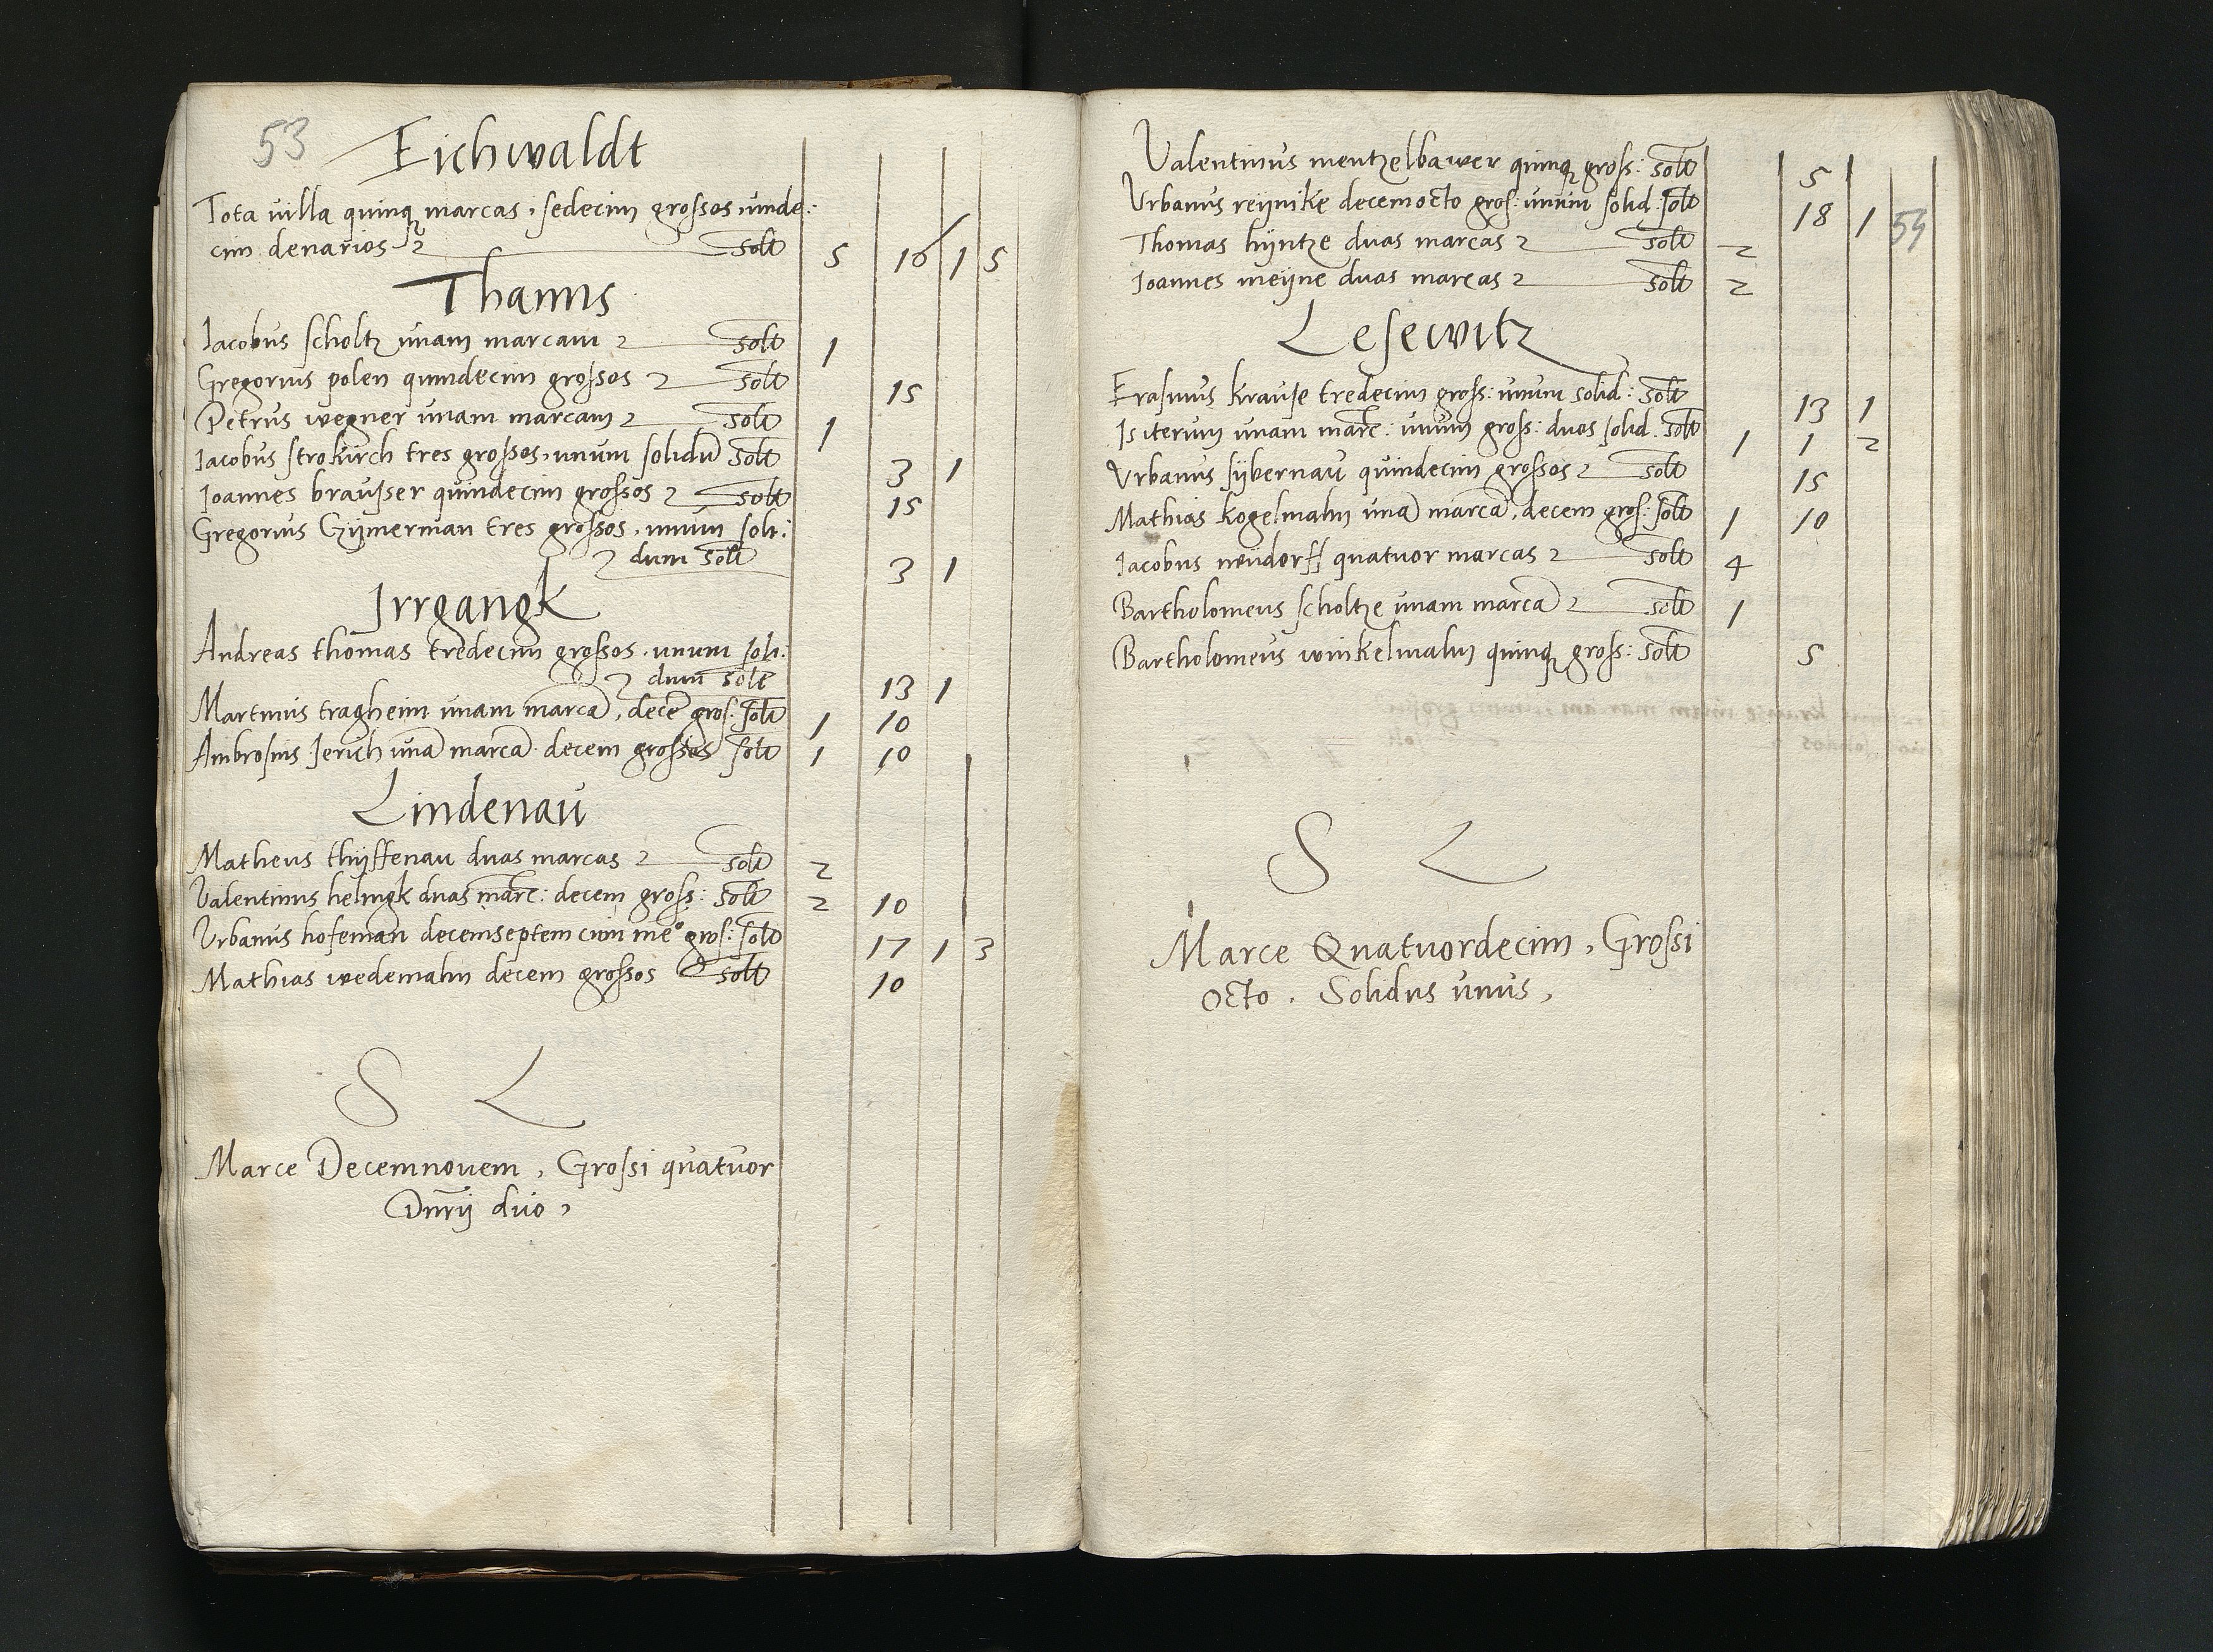 53
Eichwaldt
Tota villa quinq marcas, sedecim grossos, unde:
cim denarios solt 5 16 1 5
Thanns
Iacobus scholtz unam marcam solt 1
Gregorius polen quindecim grossos solt 15
Petrus wegner unam marcam solt 1
Iacobus strokirch tres grossos, unum solidu solt 3 1
Ioannes brauser quindecim grossos solt 15
Gregorius Czijmerman tres grossos, unum soli:
dum solt 3 1
Irrgangk
Andreas thomas tredecim grossos, unum soli:
dum solt 13 1
Martinus tragheim unam marca, dece gros: solt 1 10
Ambrosius Jerich una marca decem grossos solt 1 10
Lindenau
Matheus thijffenau duas marcas solt 2
Valentinus helingk duas marc: decem gross: solt 2 10
Urbanus hofeman decemseptem cum me° gros: solt 17 1 3
Mathias wedemahn decem grossos solt 10
S L
Marce Decemnouem, Grossi quatuor
Dnrij duo,
Valentinus mentzelbawer quinq gross: solt 5
Urbanus reijnike decemocto gros: unum solid: solt 18 1
54
Thomas hijntze duas marcas solt 2
Ioannes meijne duas marcas solt 2
Lesewitz
Erasmus krause tredecim gross: unum solid: solt 13 1
Is iterum unam marc: unum gross: duos solid. solt 1 1 2
Urbanus sijbernau quindecim grossos solt 15
Mathias kogelmahn una marca, decem gros: solt 1 10
Iacobus neudorff quatuor marcas solt 4
Bartholomeus scholtze unam marca solt 1
Bartholomeus winkelmahn quinq gross: solt 5
S L
Marce Quatuordecim, Grossi
octo. Solidus unus,